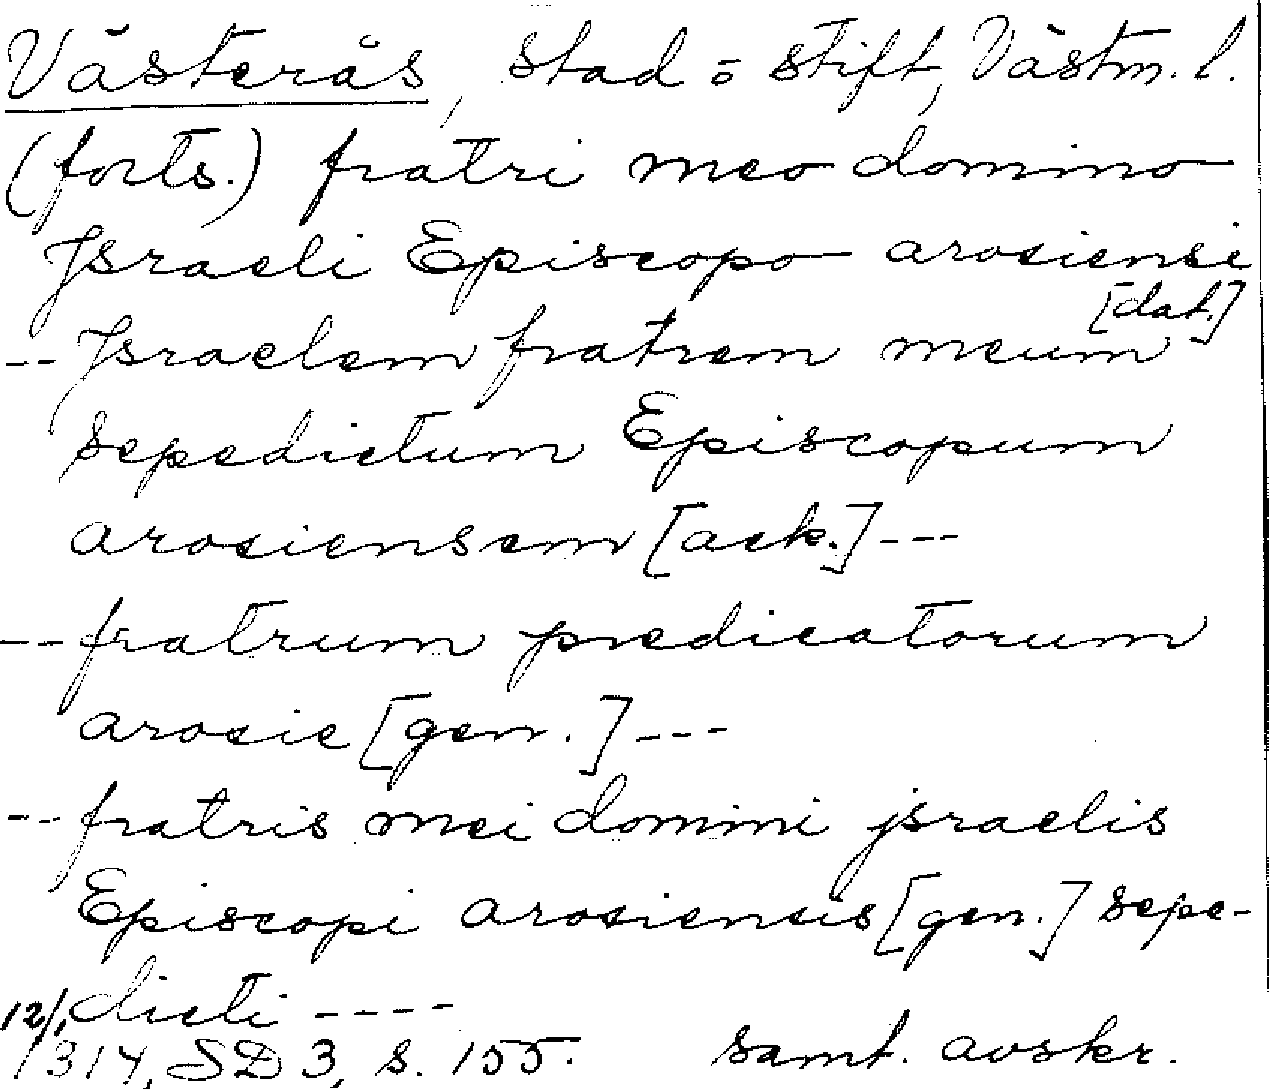 Västerås, stad o stift, Västm. l.
(forts.) fratri meo domino
Israeli Episcopo arosiensi
[dat.]
-- Israelem fratrem meum
sepedictum Episcopum
arosiensem [ack.] ---
-- fratrum predicatorum
arosie [gen.] ---
-- fratris mei domini jsraelis
Episcopi arosiensis [gen.] sepe-
dicti ----
12/1 1314, SD 3, s. 155. samt. avskr.